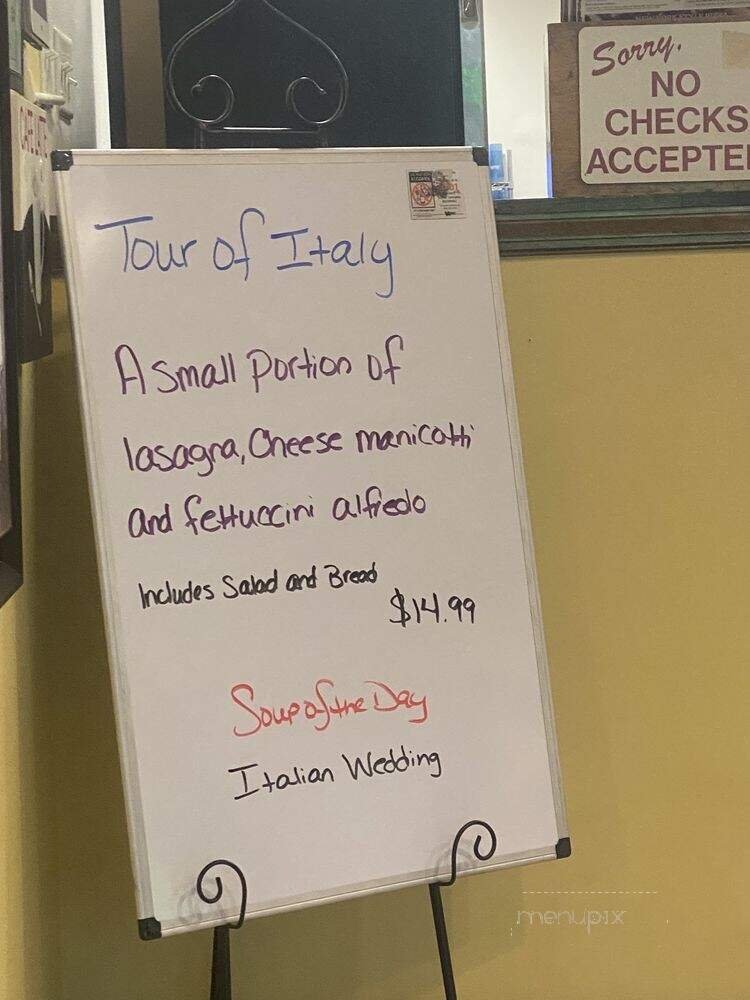 Sorry,
NO
CHECKS
ACCEPTE
Tour of Italy
A small portion of
lasagna, Cheese manicotti
and fettuccini alfredo
Includes Salad and Bread
$14.99
Soup of the Day
Italian Wedding
menupix